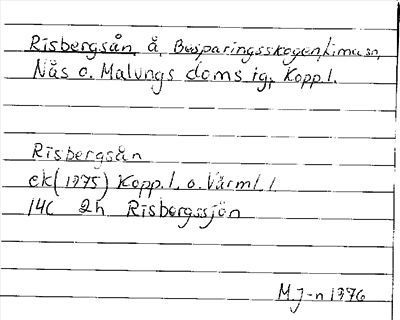 Risbergsån, å, Busparingsskogen, Lima sn,
Nås o. Malungs doms.ig, Kopp.l.
Risbergsån
ek (1975) Kopp.l. o. Värml.l
14C 2h Risbergssjön
M.J-n 1976